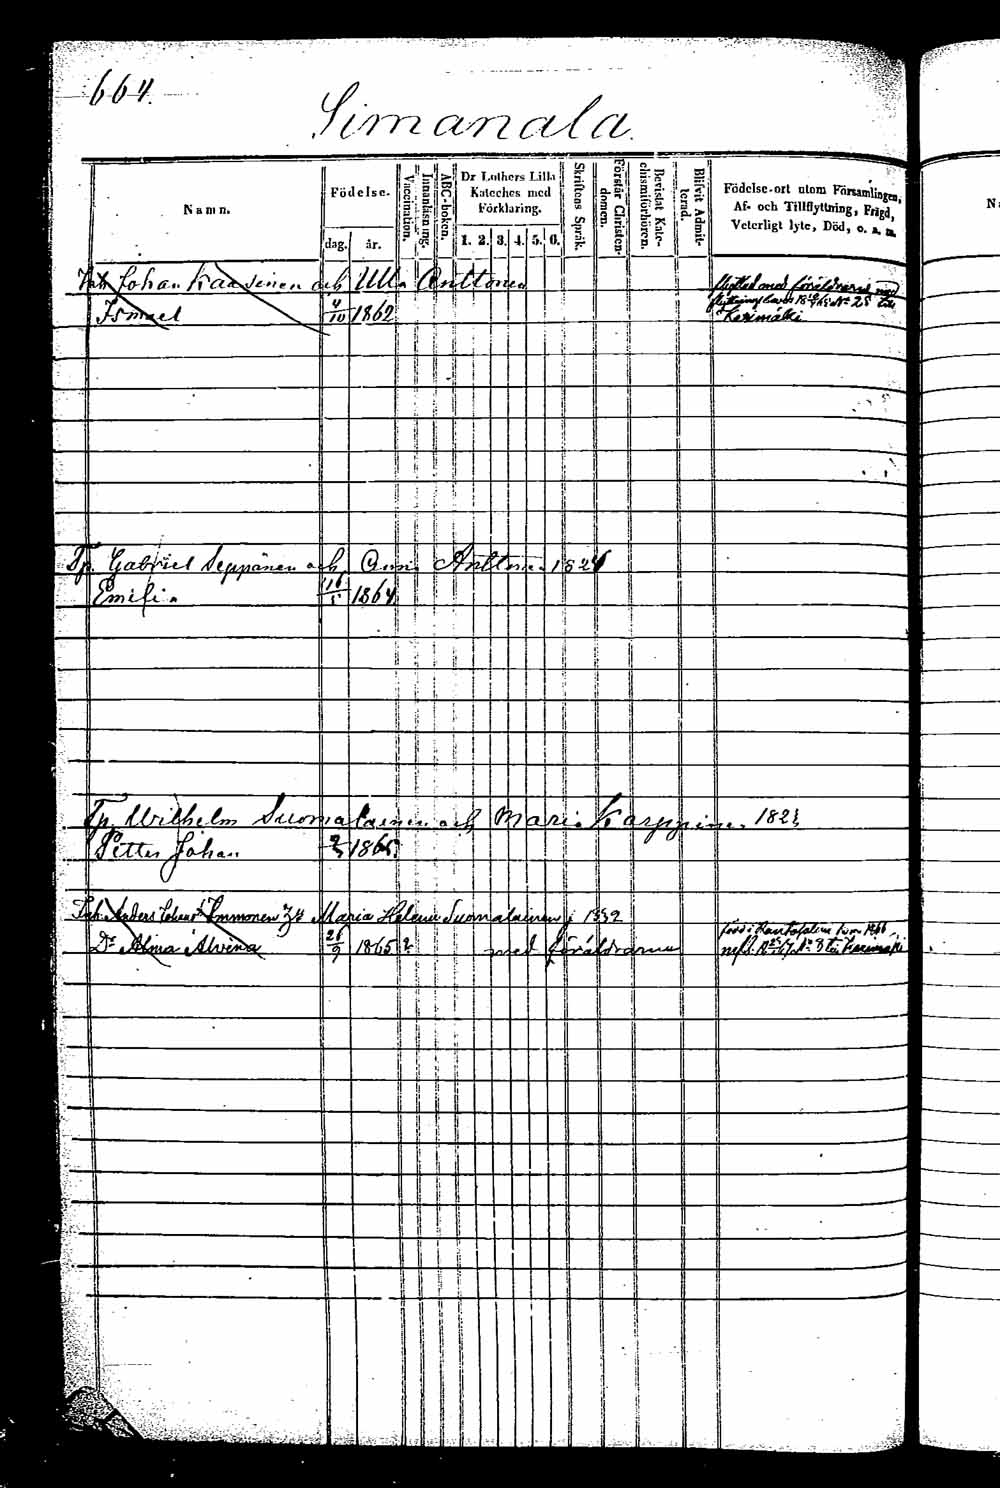 664.
Simanala
Namn.
Födelse.
dag. år.
Vaccination.
Innanläsning.
ABC-boken.
Dr Luthers Lilla Kateches med Förklaring.
1. 2. 3. 4. 5. 6.
Skriftens Språk.
Förstår Christendomen.
Bevistat Katechismiförhören.
Blifvit Admitterad.
Födelse-ort utom Församlingen,
Af- och Tillflyttning, Frägd,
Veterligt lyte, Död, o. s. m.
Na
Johan Kaasinen och Ulla Anttonen
flytted med föräldrarne med
Ismael 4/10 1862
Kerimäki
Tp. Gabriel Seppänen och Anna Anttonen 1824
Emilia 16/5 1864
Tp. Wilhelm Suomalainen och Maria Karppinen 182
Petter Johan 1865
Inh. Anders Immonen Maria Helena Suomalainen 1832
Dr Alina Alvina 26/9 1865 med föräldrarna
N° 3 till Kerimäki